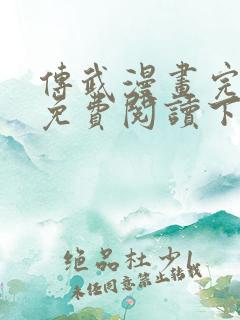 傳武漫畫完
免費閱讀下
絕品杜少
未經同意禁止轉載